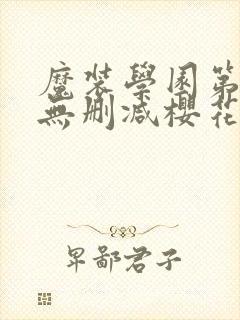 魔裝學園第
無刪減櫻花
卑鄙君子